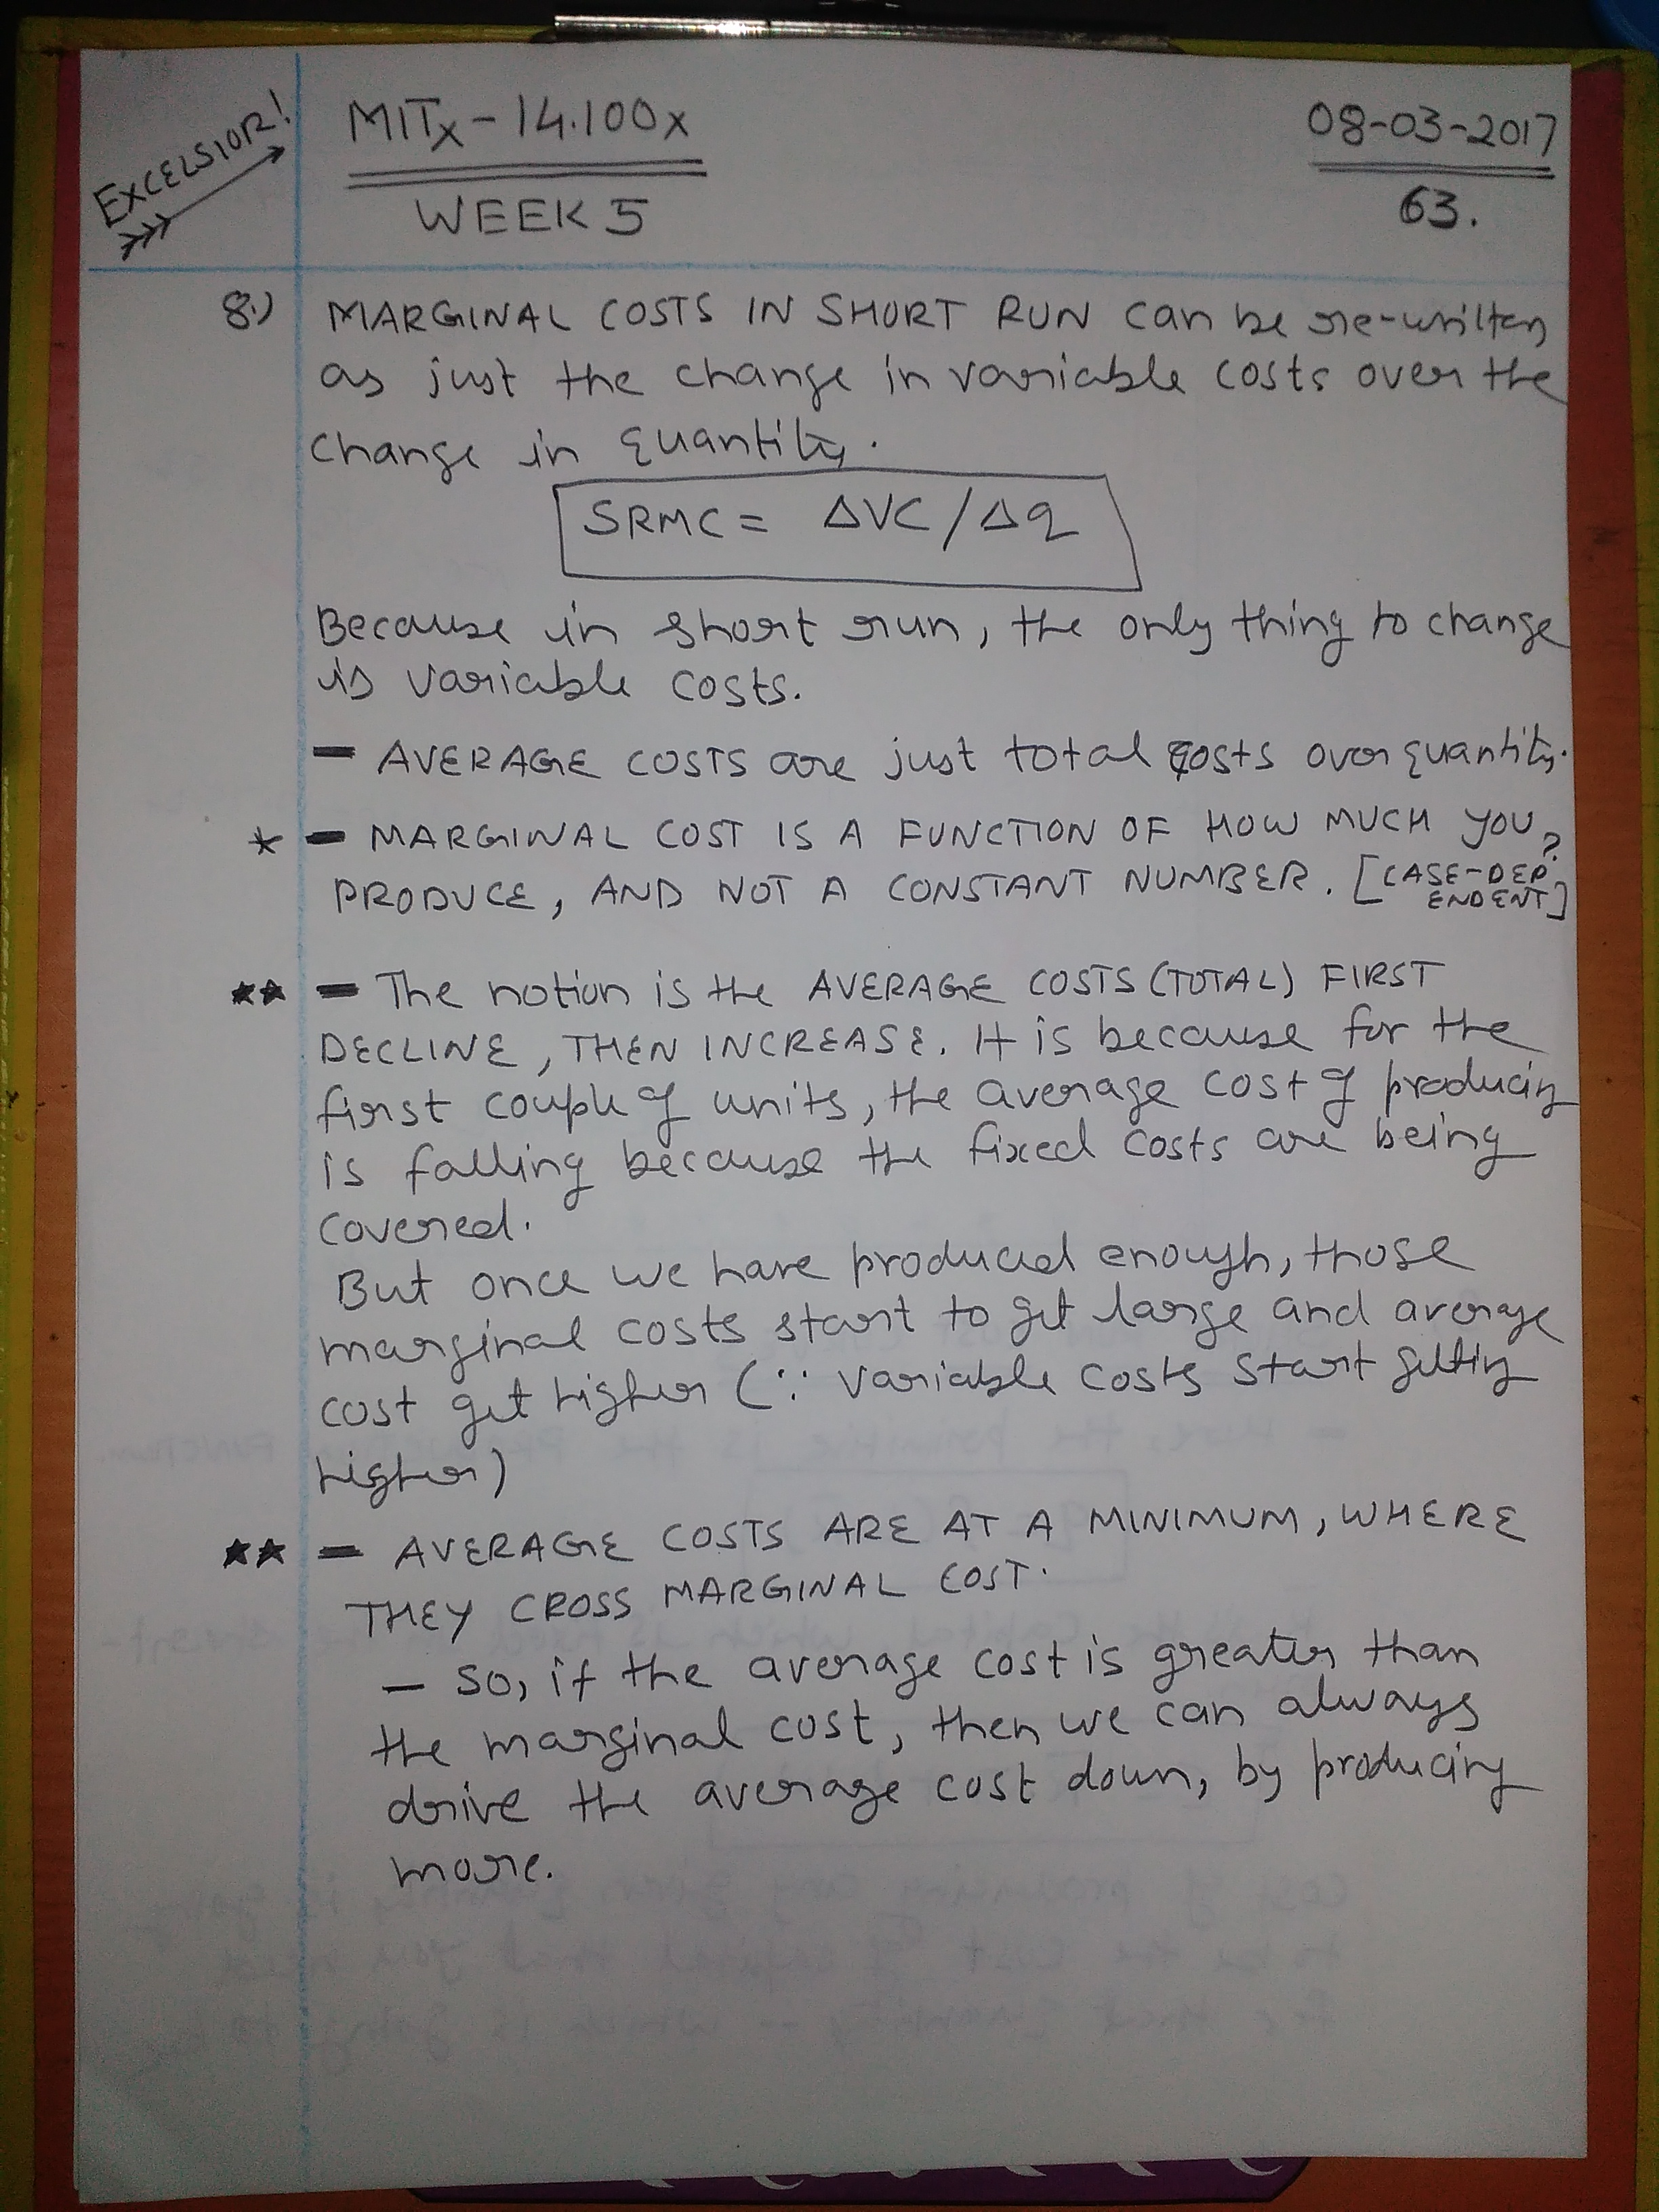 EXCELSIOR!
MITx - 14.100x
WEEK 5
08-03-2017
63.
8.) MARGINAL COSTS IN SHORT RUN can be re-written
as just the change in variable costs over the
change in quantity.
SRMC = ΔVC/Δq
Because in short run, the only thing to change
is variable costs.
- AVERAGE COSTS are just total costs over quantity.
* - MARGINAL COST IS A FUNCTION OF HOW MUCH YOU
PRODUCE, AND NOT A CONSTANT NUMBER. [CASE-DEP
ENDENT]?
** - The notion is the AVERAGE COSTS (TOTAL) FIRST
DECLINE, THEN INCREASE. It is because for the
first couple of units, the average cost of producing
is falling because the fixed costs are being
covered.
But once we have produced enough, those
marginal costs start to get large and average
cost get higher (∵ variable costs start getting
higher)
** - AVERAGE COSTS ARE AT A MINIMUM, WHERE
THEY CROSS MARGINAL COST.
- So, if the average cost is greater than
the marginal cost, then we can always
drive the average cost down, by producing
more.